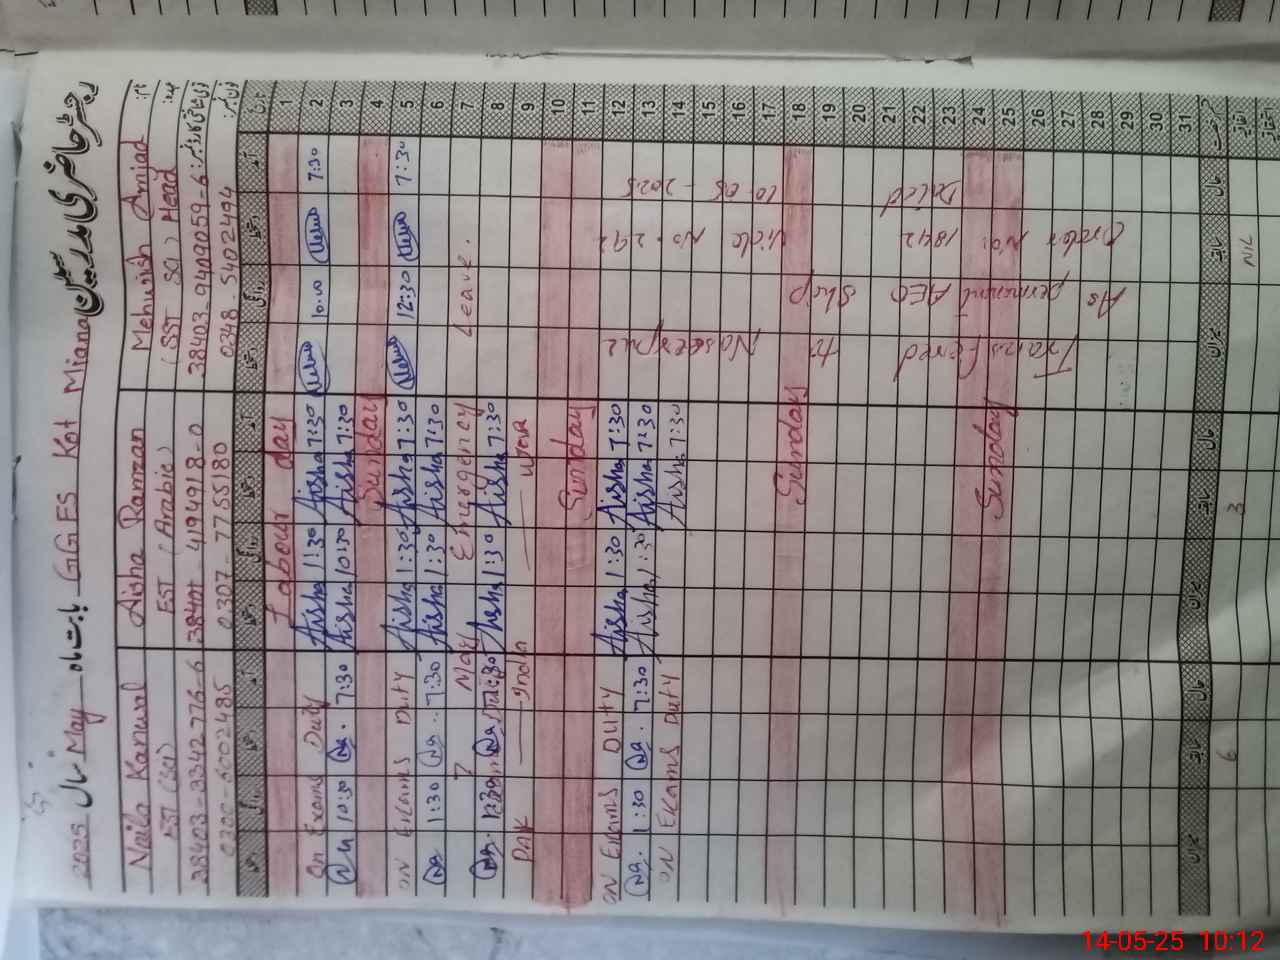 رجسٹر حاضری مدرسین سکول GGES Kot Miana بابت ماہ May سال 2025
نام: Mehwish Amjad Aisha Ramzan Naila Kanwal
عہدہ: (SST Sc) Head EST (Arabic) EST (Sc)
قومی شناختی کارڈ نمبر: 38403-9409059-6 38401-4194918-0 38403-3342776-6
فون نمبر: 0348-5402494 0307-7755180 0300-6002485
تاریخ
1 Labour day
2 7:30 10:00 Aisha 7:30 Aisha 1:30 On Exams Duty
3 Aisha 7:30 Aisha 10:30 7:30 10:30
4 Sunday
5 7:30 12:30 Aisha 7:30 Aisha 1:30 ON Exams Duty
6 Aisha 7:30 Aisha 1:30 7:30 1:30
7 7 May Emergency Leave.
8 Aisha 7:30 Aisha 1:30
9 Pak — India — war
10
11 Sunday
12 Aisha 7:30 Aisha 1:30 ON Exams DUTY
13 Aisha 7:30 Aisha 1:30 7:30 1:30
14 Aisha 7:30 ON Exams DUTY
15
16
17
18 Sunday
19
20
21
22
23
24
25 Sunday
26
27
28
29
30
31
Transfered to Naseerpur
As permanent AEO
Order No: 1842 vide No. 292
Dated 10-05-2025
NIL 3 6
14-05-25 10:12